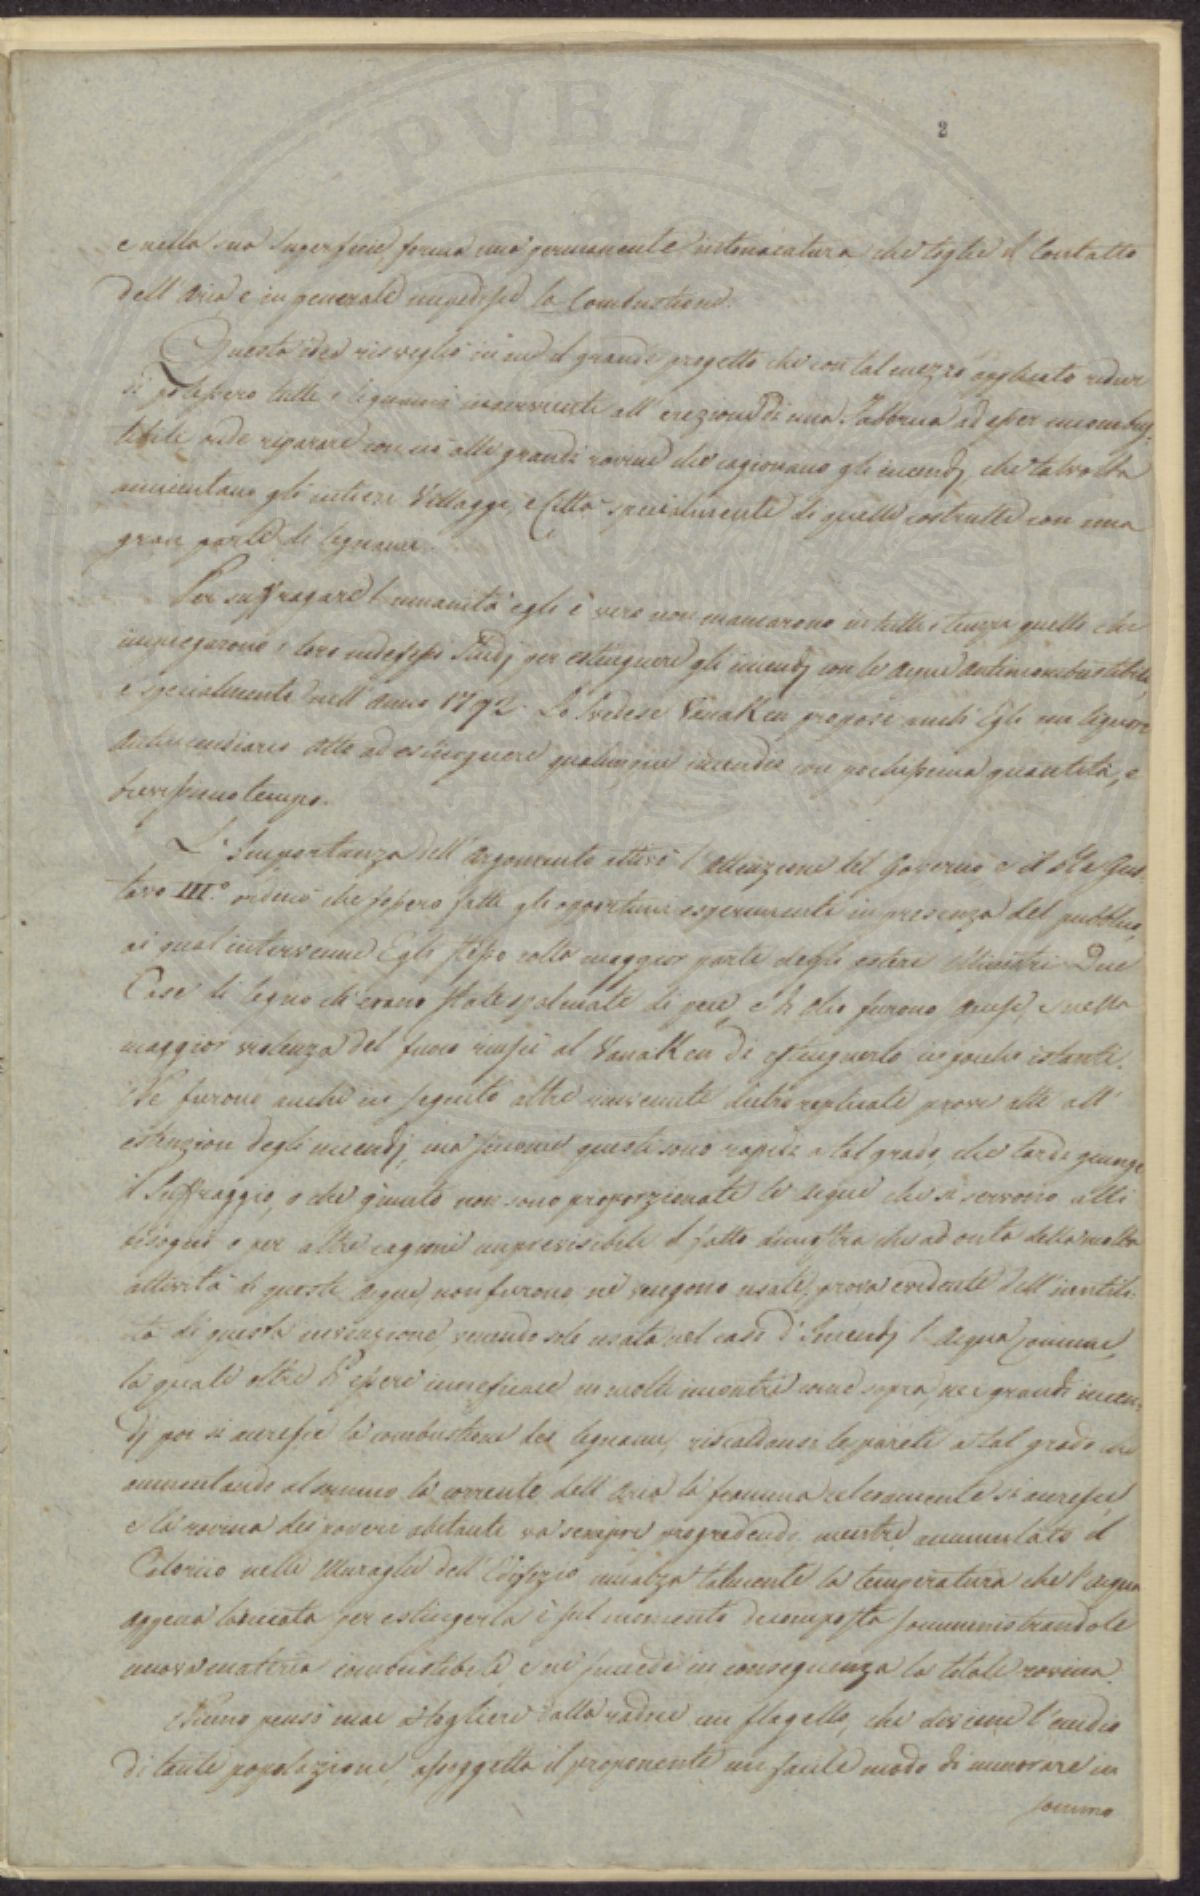 PUBLICA
2
e nella sua superficie forma una permanente intonacatura che toglie il Contatto
dell'aria e in generale impedisce la Combustione.
Questa idea risvegliò in me il grande progetto che con tal mezzo applicato ridur
si potessero tutti i legnami inservienti all'erezione di una Fabbrica ad esser incombus-
tibili onde riparare con ciò alle grandi rovine che cagionano gli incendj, che talvolta
annientano gli intieri Villaggi, e Città specialmente di quelle costrutte con una
gran parte di legname.
Per suffragare l'umanità egli è vero non mancarono in tutti i tempi quelli che
impiegarono i loro indefessi Studj per estinguere gli incendj con le acque anti
e specialmente nell'anno 1792. Lo Svedese VanaKen propose anch'Egli un liquore
antincendiario atto ad estinguere qualunque incendio con pochissima quantità, e
brevissimo tempo.
L'Importanza dell'argomento attirò l'attenzione del Governo, e il Re Gus-
tavo III.o ordinò che fossero fatti gli opportuni esperimenti in presenza del pubblico,
ai quali intervenne Egli stesso colla maggior parte degli esteri Ministri. Due
Case di legno ch'erano state spalmate di pece, e di olio furono accese, e nella
maggior violenza del fuoco riuscì al VanaKen di estinguerlo in pochi istanti.
Ne furono anche in seguito altre rinvenute dietro replicate prove atte all'
estinzion degli incendj, ma siccome questi sono rapidi a tal grado, che tardi giunge
il Suffraggio, o che giunto non sono proporzionate le acque che si servono alli
bisogni o per altre cagioni imprevisibili il fatto dimostra che ad onta della molta
attività di queste acque, non furono né vengono usate, prova evidente dell'inutili-
tà di questa invenzione, venendo solo usata nel caso d'Incendj l'acqua comune,
la quale oltre l'essere inneficace in molti incontri come sopra, nei grandi incen-
dj poi si accresce la combustione dei legnami, riscaldansi le pareti a tal grado che
aumentando al sommo la corrente dell'aria la fiamma celeramente si accresce
e la rovina dei poveri abitanti va sempre progredendo, mentre accumulato il
Calorico nelle Muraglie dell'Edifizio innalza talmente la temperatura che l'acqua
appena lanciata per estinguerla è sul momento decomposta somministrandole
nuova materia combustibile, e ne succede in conseguenza la totale rovina.
Niuno pensò mai a togliere dalla radice un flagello, che
di tante popolazione, assoggetta il proponente un facile modo di minorare in
sommo